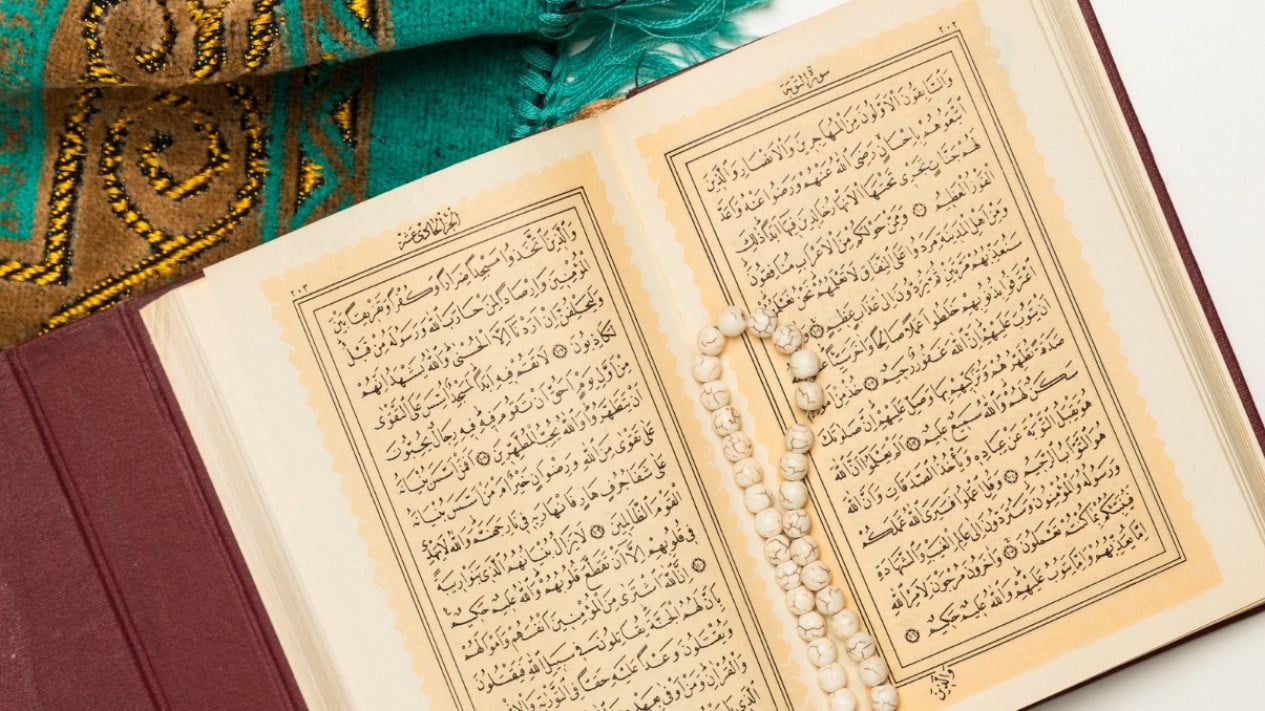 ٢٠٢
سورة التوبة
وَالسَّابِقُونَ الْأَوَّلُونَ مِنَ الْمُهَاجِرِينَ وَالْأَنْصَارِ وَالَّذِينَ
اتَّبَعُوهُمْ بِإِحْسَانٍ رَضِىَ اللهُ عَنْهُمْ وَرَضُوا عَنْهُ وَأَعَدَّ
لَهُمْ جَنَّاتٍ تَجْرِى تَحْتَهَا الْأَنْهَارُ خَالِدِينَ فِيهَا أَبَدًا ذَلِكَ
الْفَوْزُ الْعَظِيمُ وَمِمَّنْ حَوْلَكُمْ مِنَ الْأَعْرَابِ مُنَافِقُونَ
وَمِنْ أَهْلِ الْمَدِينَةِ مَرَدُوا عَلَى النِّفَاقِ لَا تَعْلَمُهُمْ نَحْنُ نَعْلَمُهُمْ
سَنُعَذِّبُهُمْ مَرَّتَيْنِ ثُمَّ يُرَدُّونَ إِلَى عَذَابٍ عَظِيمٍ
اعْتَرَفُوا بِذُنُوبِهِمْ خَلَطُوا عَمَلًا صَالِحًا وَآخَرَ سَيِّئًا
أَنْ يَتُوبَ عَلَيْهِمْ إِنَّ اللهَ غَفُورٌ رَحِيمٌ خُذْ مِنْ
صَدَقَةً تُطَهِّرُهُمْ وَتُزَكِّيهِمْ بِهَا وَصَلِّ عَلَيْهِمْ إِنَّ صَلَوتَكَ
سَكَنٌ لَهُمْ وَاللهُ سَمِيعٌ عَلِيمٌ أَلَمْ يَعْلَمُوا أَنَّ اللهَ
هُوَ يَقْبَلُ التَّوْبَةَ عَنْ عِبَادِهِ وَيَأْخُذُ الصَّدَقَاتِ وَأَنَّ اللهَ
هُوَ التَّوَّابُ الرَّحِيمُ وَقُلِ اعْمَلُوا فَسَيَرَى اللهُ عَمَلَكُمْ
وَرَسُولُهُ وَالْمُؤْمِنُونَ وَسَتُرَدُّونَ إِلَى عَالِمِ الْغَيْبِ وَالشَّهَادَةِ
فَيُنَبِّئُكُمْ بِمَا كُنْتُمْ تَعْمَلُونَ وَآخَرُونَ مُرْجَوْنَ لِأَمْرِ اللهِ
إِمَّا يُعَذِّبُهُمْ وَإِمَّا يَتُوبُ عَلَيْهِمْ وَاللهُ عَلِيمٌ حَكِيمٌ
وَالَّذِينَ
الجزء الحادى عشر
٢٠٣
وَالَّذِينَ اتَّخَذُوا مَسْجِدًا ضِرَارًا وَكُفْرًا وَتَفْرِيقًا بَيْنَ
الْمُؤْمِنِينَ وَإِرْصَادًا لِمَنْ حَارَبَ اللهَ وَرَسُولَهُ مِنْ قَبْلُ
وَلَيَحْلِفُنَّ إِنْ أَرَدْنَا إِلَّا الْحُسْنَى وَاللهُ يَشْهَدُ إِنَّهُمْ
لَكَاذِبُونَ لَا تَقُمْ فِيهِ أَبَدًا لَمَسْجِدٌ أُسِّسَ عَلَى التَّقْوَى
مِنْ أَوَّلِ يَوْمٍ أَحَقُّ أَنْ تَقُومَ فِيهِ فِيهِ رِجَالٌ يُحِبُّونَ
أَنْ يَتَطَهَّرُوا وَاللهُ يُحِبُّ الْمُطَّهِّرِينَ أَفَمَنْ أَسَّسَ بُنْيَانَهُ
عَلَى تَقْوَى مِنَ اللهِ وَرِضْوَانٍ خَيْرٌ أَمْ مَنْ أَسَّسَ بُنْيَانَهُ
عَلَى شَفَا جُرُفٍ هَارٍ فَانْهَارَ بِهِ فِى نَارِ جَهَنَّمَ وَاللهُ لَا يَهْدِى
الْقَوْمَ الظَّالِمِينَ لَا يَزَالُ بُنْيَانُهُمُ الَّذِى بَنَوْا رِيبَةً
فِى قُلُوبِهِمْ إِلَّا أَنْ تَقَطَّعَ قُلُوبُهُمْ وَاللهُ عَلِيمٌ حَكِيمٌ
إِنَّ اللهَ اشْتَرَى مِنَ الْمُؤْمِنِينَ أَنْفُسَهُمْ وَأَمْوَالَهُمْ
بِأَنَّ لَهُمُ الْجَنَّةَ يُقَاتِلُونَ فِى سَبِيلِ اللهِ فَيَقْتُلُونَ
وَيُقْتَلُونَ وَعْدًا عَلَيْهِ حَقًّا فِى التَّوْرَيةِ وَالْإِنْجِيلِ
وَالْقُرْآنِ وَمَنْ أَوْفَى بِعَهْدِهِ
الَّذِى